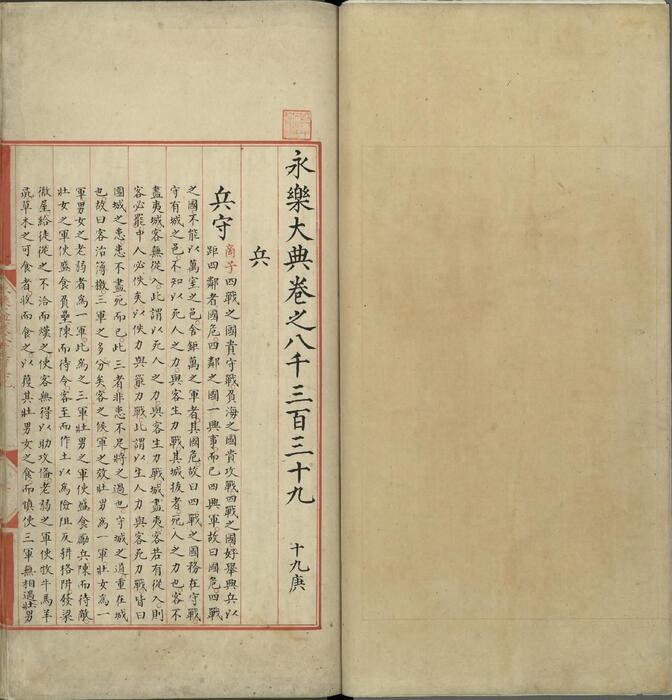 永樂大典卷之八千三百三十九
十九庚
兵
兵守
商子四戰之國貴守戰負海之國貴攻戰四戰之國好舉興兵以
距四鄰者國危四鄰之國一興事而已四興軍故曰國危四戰
之國不能以萬室之邑舍鉅萬之軍者其國危故曰四戰之國務在守戰
守有城之邑不知以死人之力與客生力戰其城拔者死人之力也客不
盡夷城客無從入此謂以死人之力與客生力戰城盡夷客若有從入則
客必罷中人必佚矣以佚力與罷力戰此謂以生人力與客死力戰皆曰
圍城之患患不盡死而已此三者非患不足將之過也守城之道重在城
也故曰客治簿檄三軍之多分矣客之候軍之效壯男為一軍壯女為一
軍男女之老弱者為一軍此為之三軍壯男之軍使盛食厲兵陳而待敵
壯女之軍使盛食負壘陳而待令客至而作土以為險阻及耕格阱發梁
徹屋給徒從之不洽而熯之使客無得以助攻俻老弱之軍使牧牛馬羊
彘草木之可食者收而食之以穫其壯男女之食而慎使三軍無相過壯男